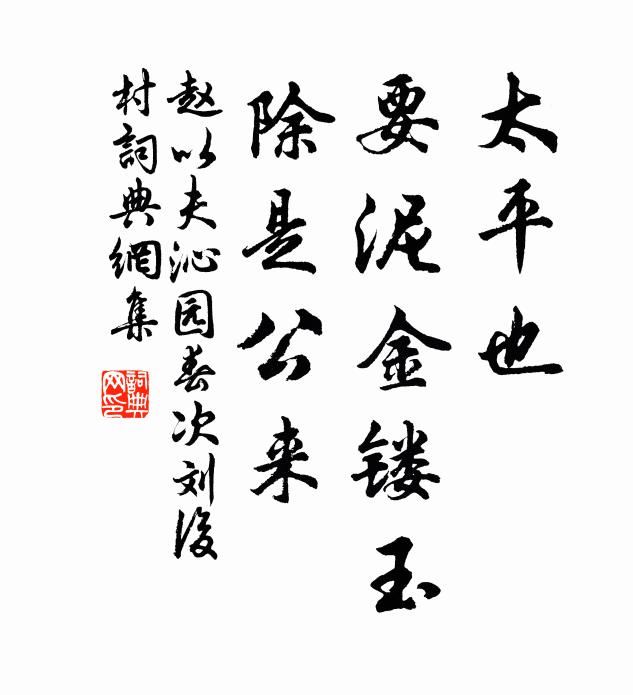 太平也
要泥金镂玉
除是公来
赵以夫沁园春次刘后
村詞典網集
詞典
网印